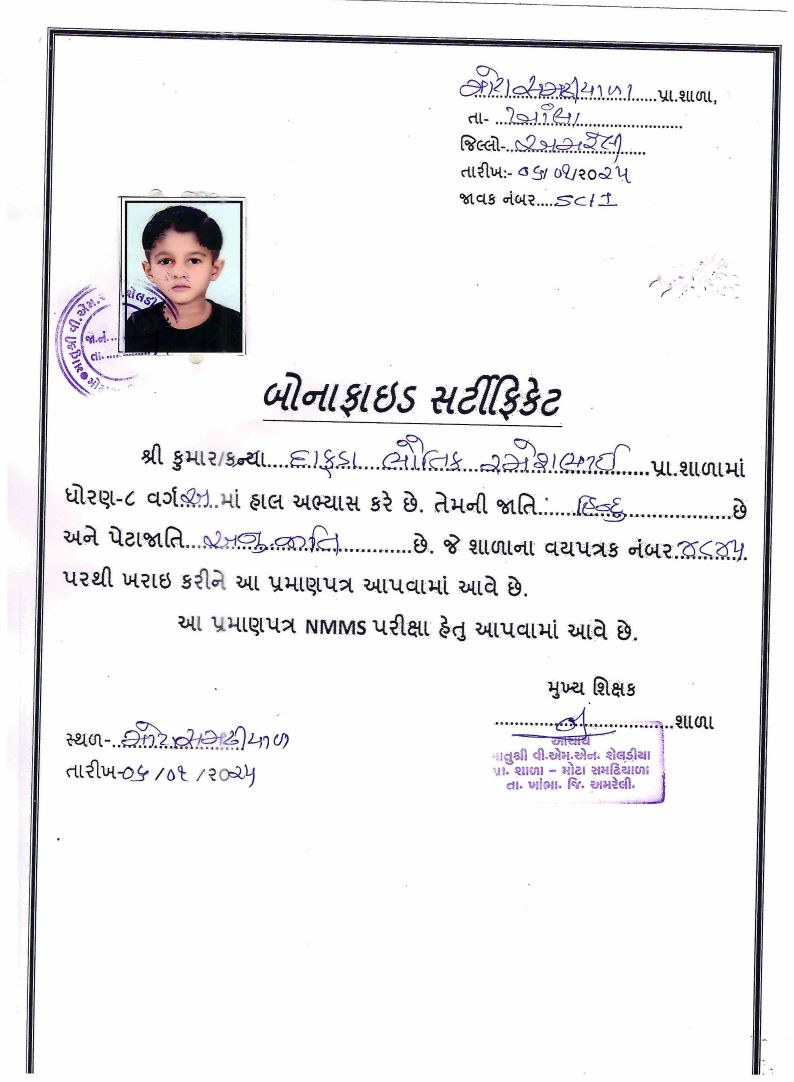 મોટા સમઢીયાળા પ્રા.શાળા,
તા- ખાંભા
જિલ્લો- અમરેલી
તારીખ:- ૦૬/ ૦૧/૨૦૨૫
જાવક નંબર.... SC/1
બોનાફાઇડ સર્ટીફિકેટ
શ્રી કુમાર/કન્યા... હાકડા ભૌતિક રમેશભાઈ ...પ્રા.શાળામાં
ધોરણ-૮ વર્ગ અ માં હાલ અભ્યાસ કરે છે. તેમની જાતિ હિન્દુ છે
અને પેટાજાતિ અનુ. જાતિ છે. જે શાળાના વયપત્રક નંબર ૪૮૪૫
પરથી ખરાઇ કરીને આ પ્રમાણપત્ર આપવામાં આવે છે.
આ પ્રમાણપત્ર NMMS પરીક્ષા હેતુ આપવામાં આવે છે.
મુખ્ય શિક્ષક
શાળા
સ્થળ- મોટા સમઢીયાળા
તારીખ-૦૬ /૦૧ /૨૦૨૫
આચાર્ય
માતુશ્રી વી.એમ.એન. શેલડીયા
પ્રા. શાળા – મોટા સમઢિયાળા
તા. ખાંભા. જિ. અમરેલી.
જા.નં....
તા.....